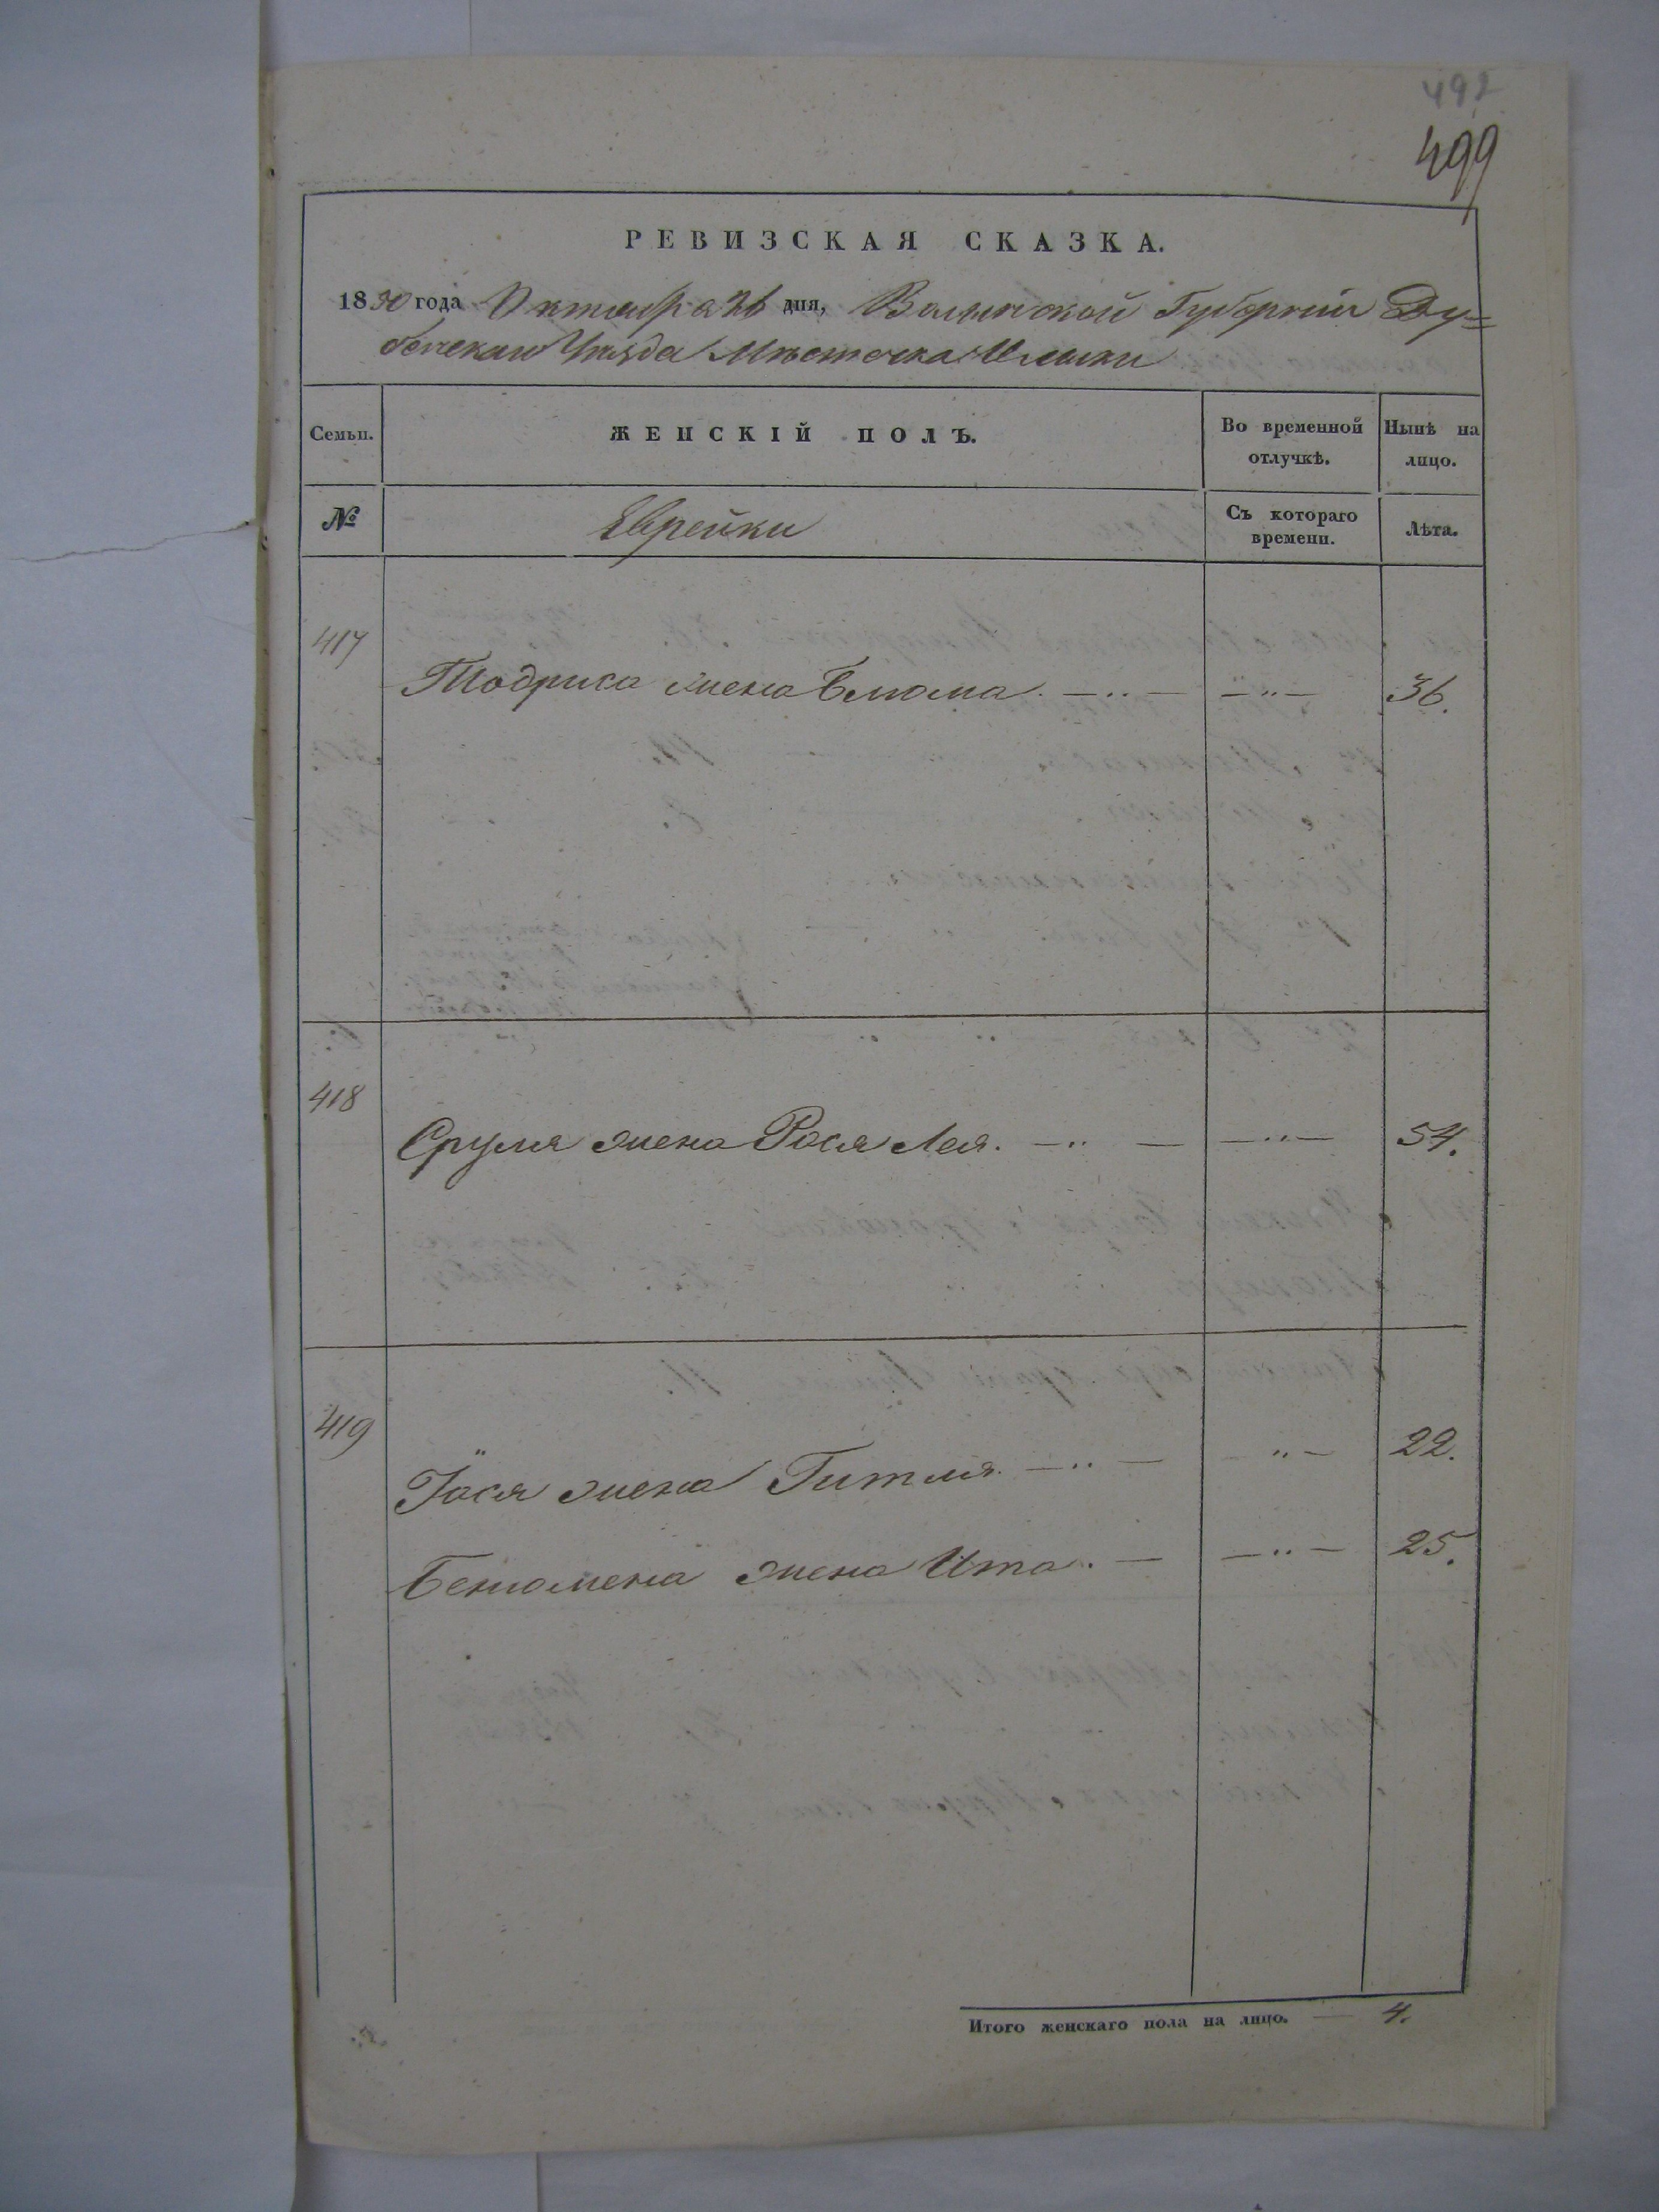 492
499
РЕВИЗСКАЯ СКАЗКА.
1850 года Октября 26 дня, Волынской Губерніи Ду=
бенскаго Уѣзда Мѣстечка Млыны
Семьи. ЖЕНСКІЙ ПОЛЪ. Во временной отлучкѣ. Нынѣ на лицо.
№ Еврейки Съ котораго времени. Лѣта.
417
Тодриса жена Блюма. — „ — — „ — 36.
418
Сруля жена Рося Лея. — „ — — „ — 54.
419
Іося жена Гитля. — „ — — „ — 22.
Бенюмена жена Ита. — — „ — 25.
Итого женскаго пола на лицо. — 4.